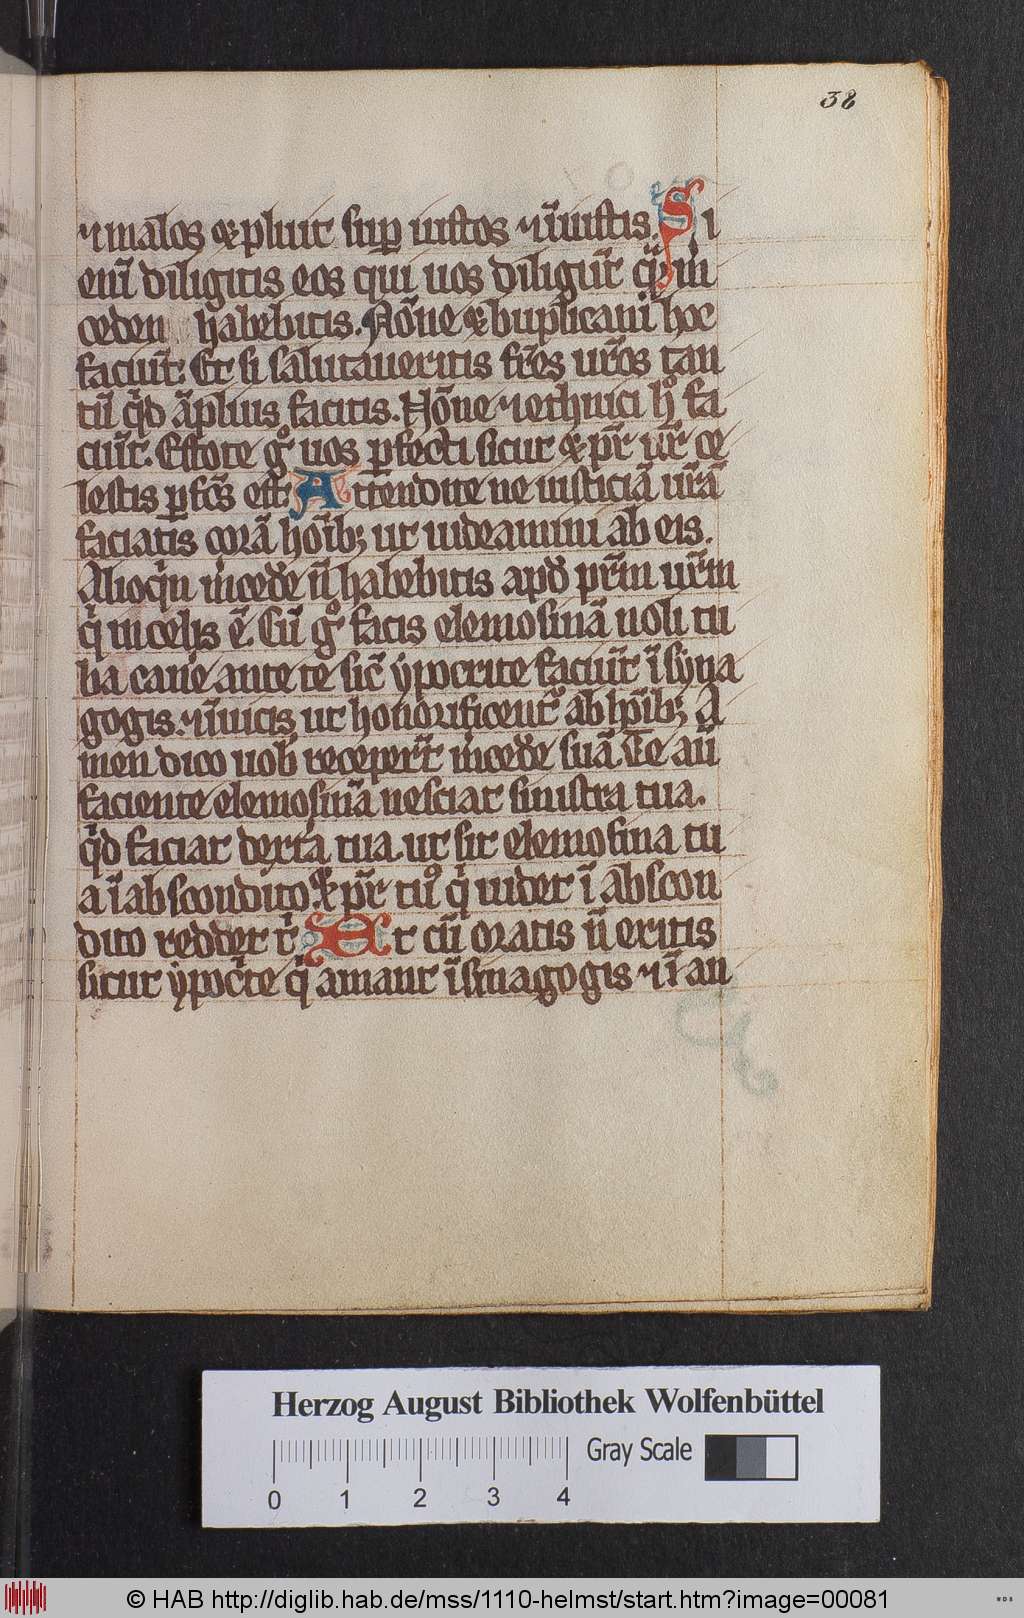 38
⁊ malos & pluit suꝑ iustos ⁊ iniustis. Si
eni᷒ diligitis eos qui uos diligūt q̄m m̄
cedem habebitis. Nōne & puplicani hoc
faciūt. Et si salutaueritis fr̄es ur̄os tan
tū qͥd āplius facitis. Nōne ⁊ ethnici hͦ fa
ciūt. Estote gͦ uos ꝑfecti sicut & pr̄ ur̄ ce
lestis ꝑfc̄s est. Attendite ne iusticiā ur̄ā
faciatis corā hoīb; ut uideamini ab eis.
Alioqͥn m̄cedē n̄ habebitis apd̄ pr̄m ur̄m
qͥ in celis ē. Cū gͦ facis elemosinā noli tu
ba canē ante te sic̄ ypocrite faciūt ī syna
gogis. ⁊ in uicis ut honorificent᷑ ab hoīb; A
men dico uob̄ receperūt m̄cedē suā. Te aū
faciente elemosinā nesciat sinistra tua.
qͥd faciat dext̄a tua. ut sit elemosina tu
a ī abscondito. & pr̄ tuͦ qͥ uidet ī abscon
dito reddet tͥ Et cū oratis n̄ eritis
sicut ypoc̄te qͥ amant ī sinagogis ⁊ ī an
Herzog August Bibliothek Wolfenbüttel
Gray Scale
0 1 2 3 4
© HAB http://diglib.hab.de/mss/1110-helmst/start.htm?image=00081